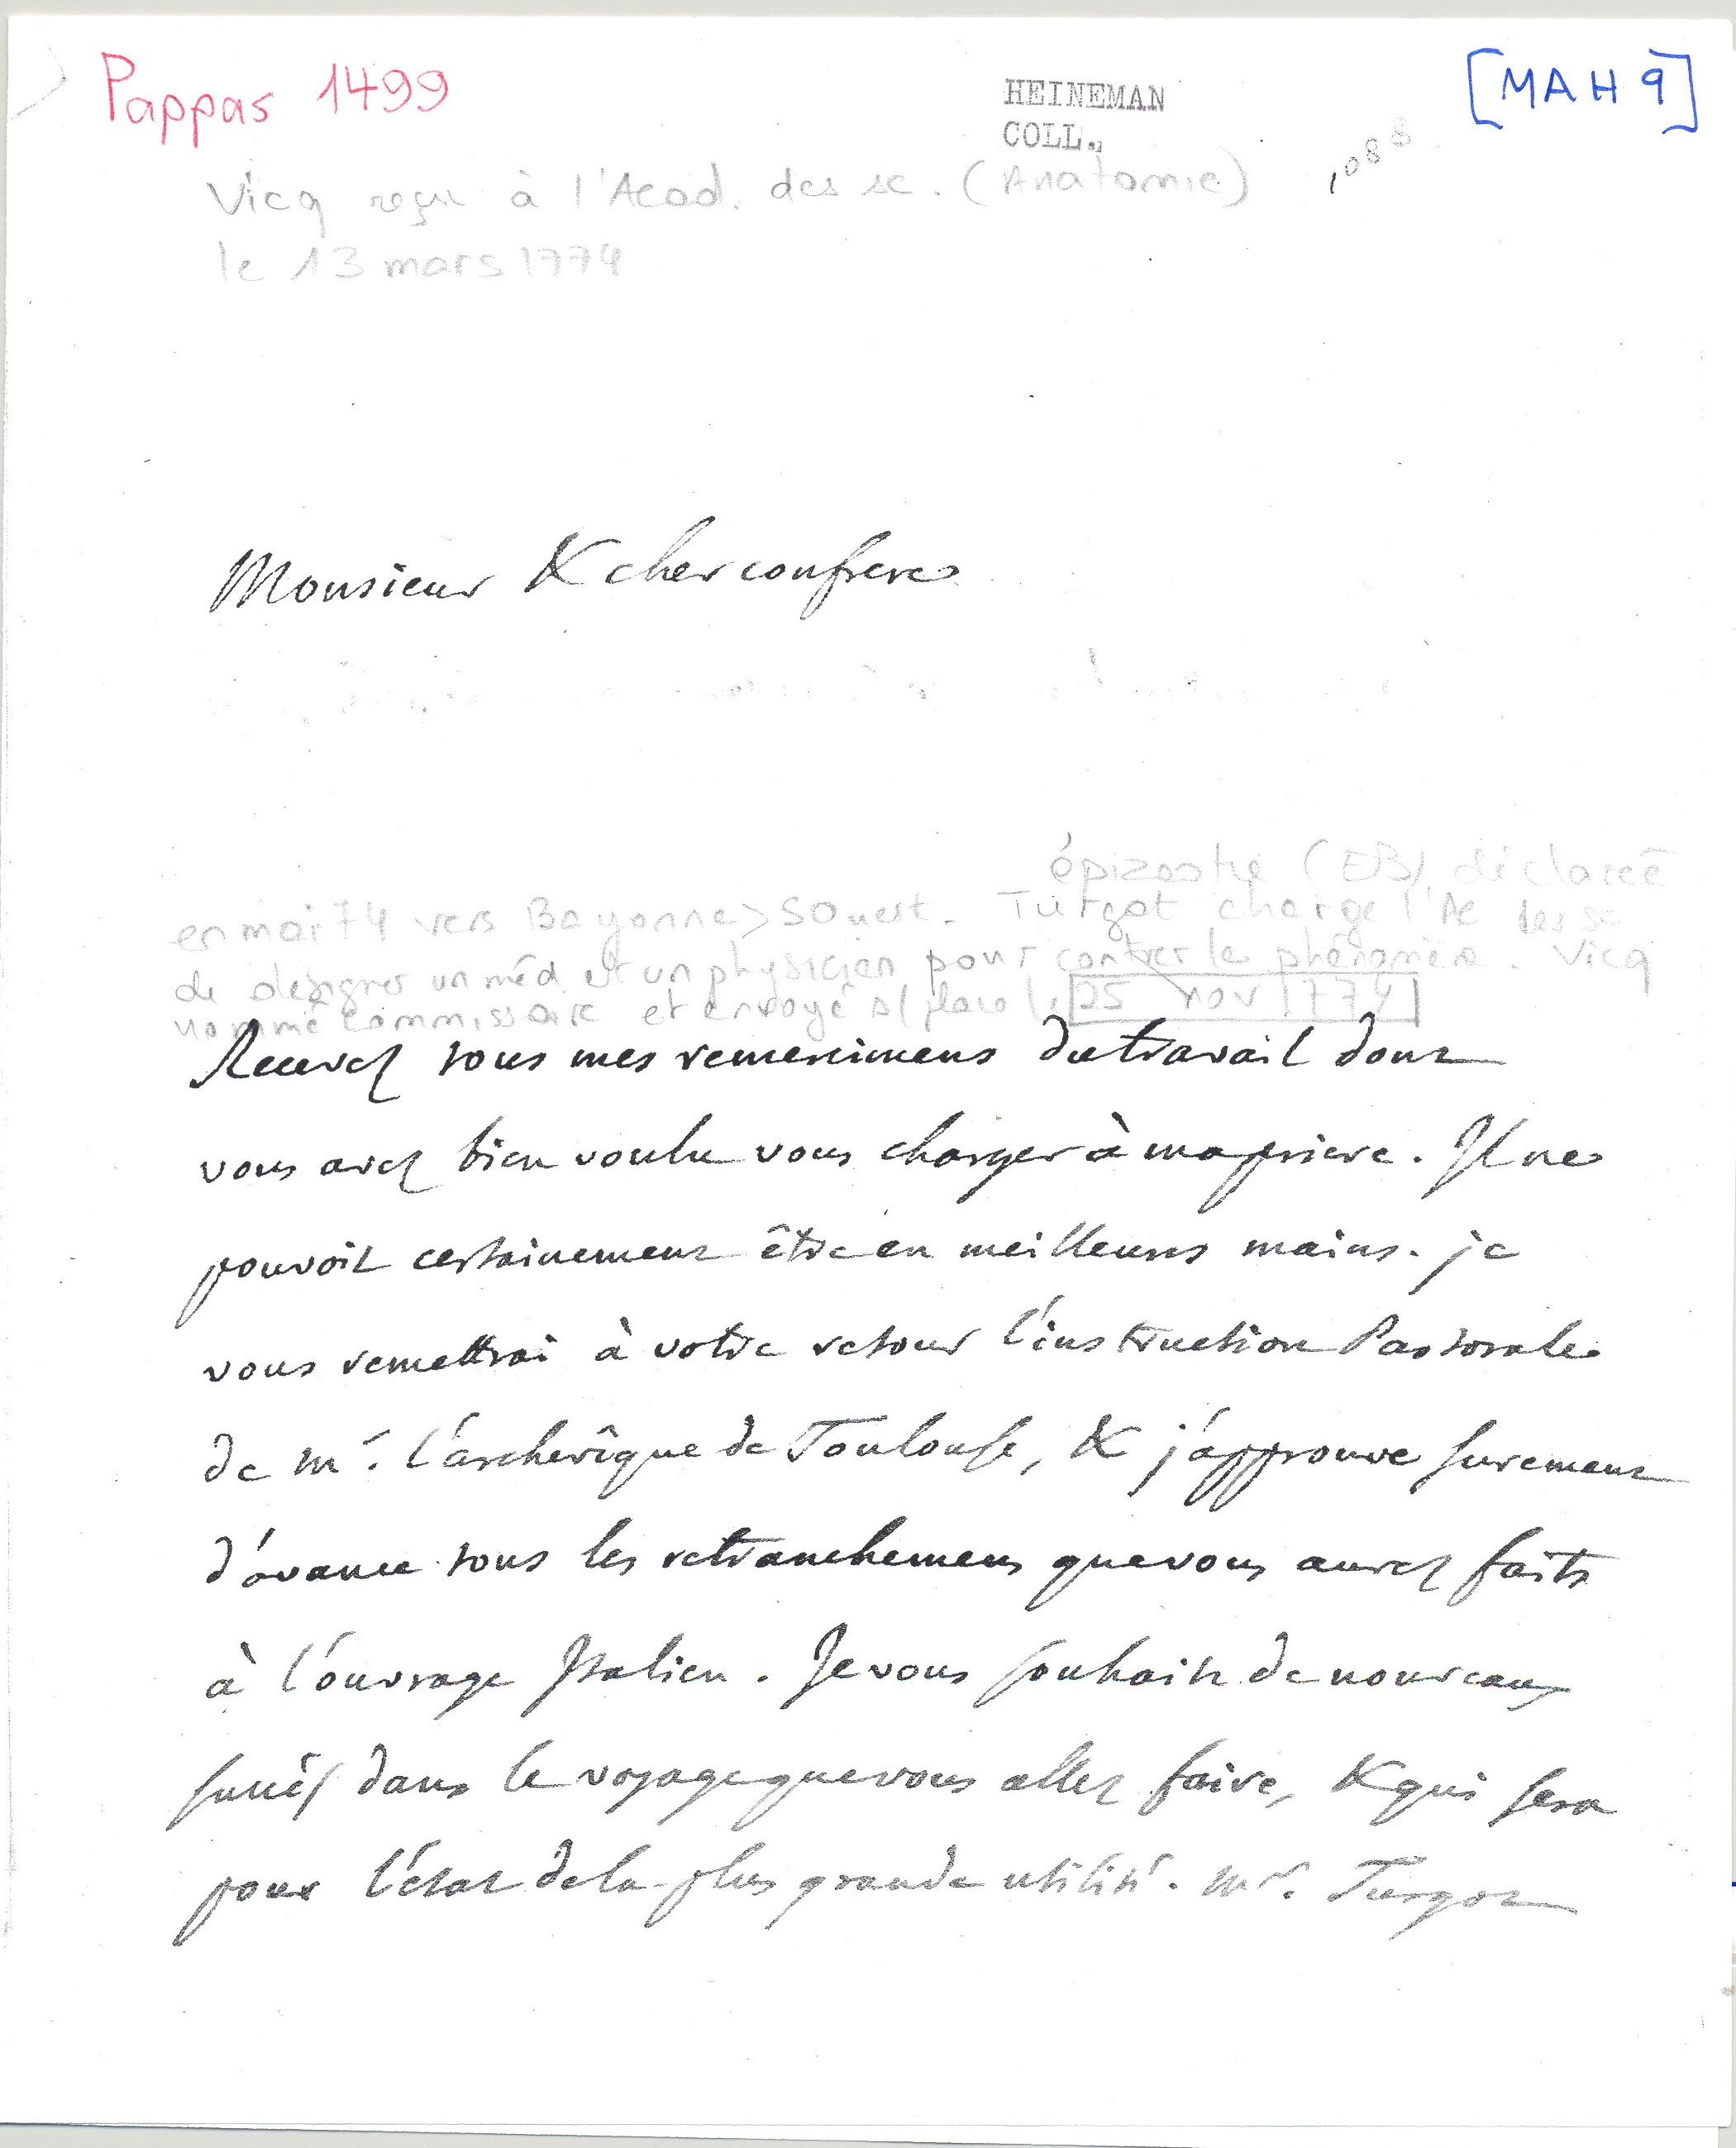 Pappas 1499
HEINEMAN
COLL.
[MAH 9]
1088
Vicq reçu à l'Acad. des sc. (Anatomie)
le 13 mars 1774
Monsieur & cher confrere
épizootie (EB) déclarée
en mai 74 vers Bayonne > SOuest. Turgot charge l'Ac des sc
de désigner un méd et un physicien pour contrer le phénomène. Vicq
nommé commissaire et envoyé s/place le 25 nov 1774
Recevez tous mes remercimens du travail dont
vous avez bien voulu vous charger à ma priere. Il ne
pouvoit certainement être en meilleures mains. je
vous remettrai à votre retour l'instruction Pastorale
de mr. l'archevêque de Toulouse, & j'approuve surement
d'avance tous les retranchemens que vous aurez faits
à l'ouvrage Italien. Je vous souhaite de nouveaux
succès dans le voyage que vous allez faire, & qui sera
pour l'état de la plus grande utilité. mr. Turgot